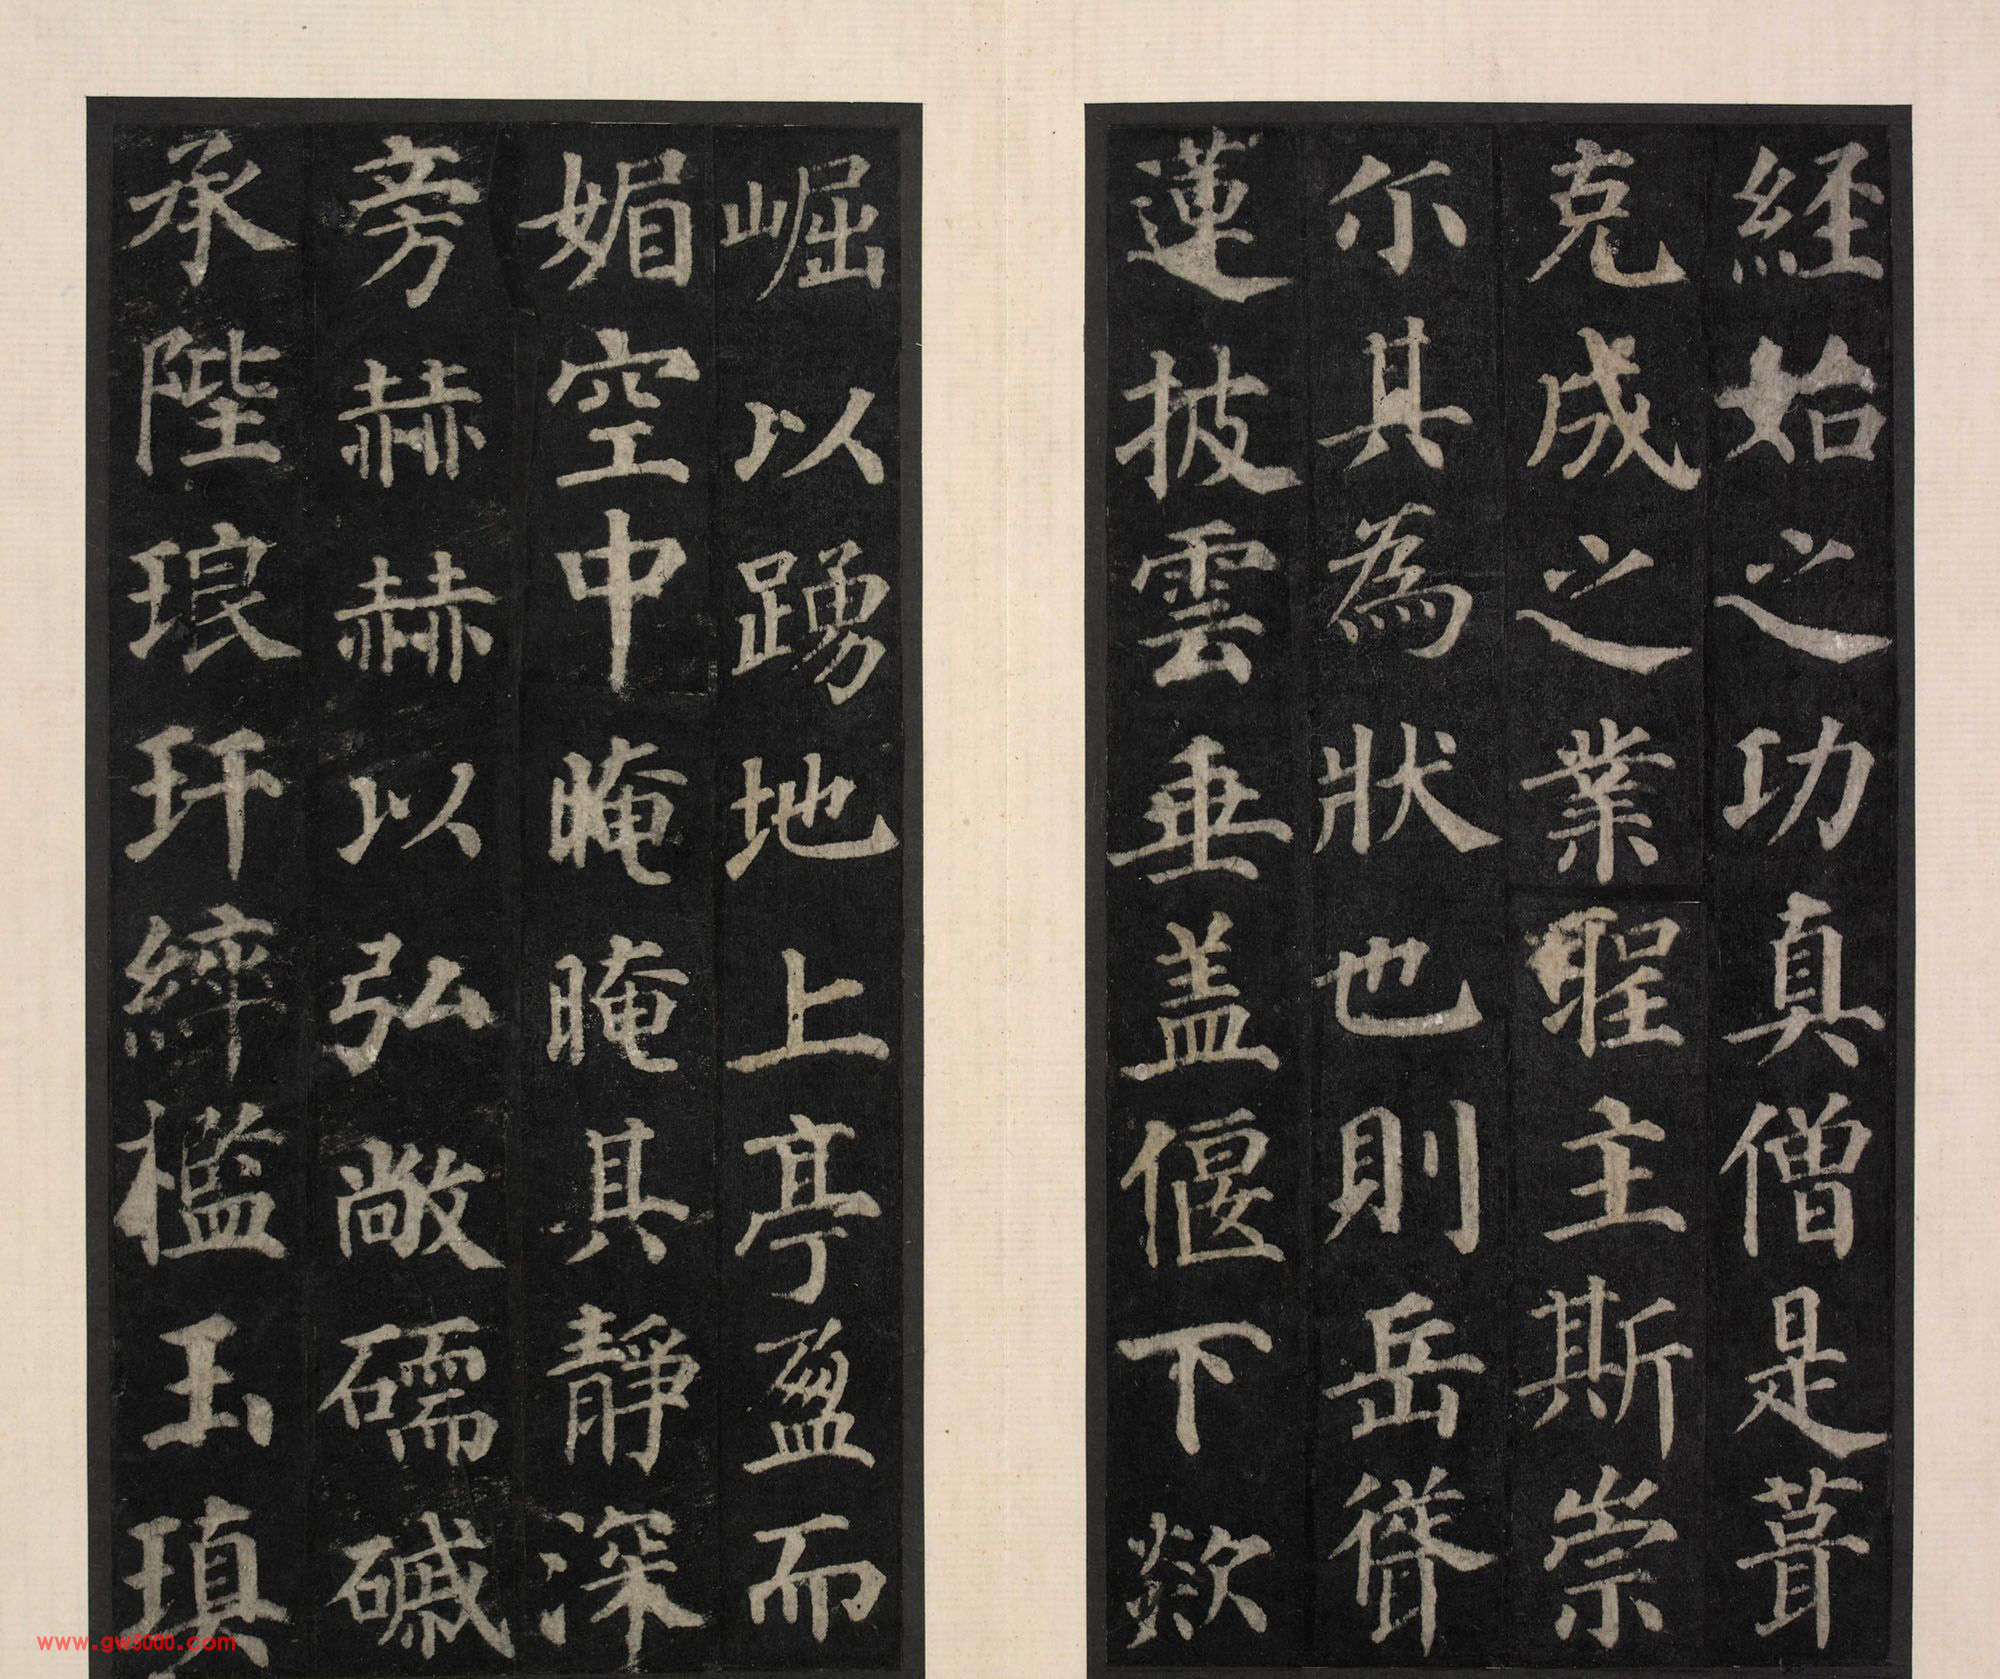 経始之功真僧是葺
克成之業聖主斯崇
尓其為狀也則岳聳
蓮披雲垂盖偃下欻
崛以踴地上亭盈而
媚空中晻晻其靜深
旁赫赫以弘敞礝磩
承陛琅玕綷檻玉瑱
www.gw5000.com